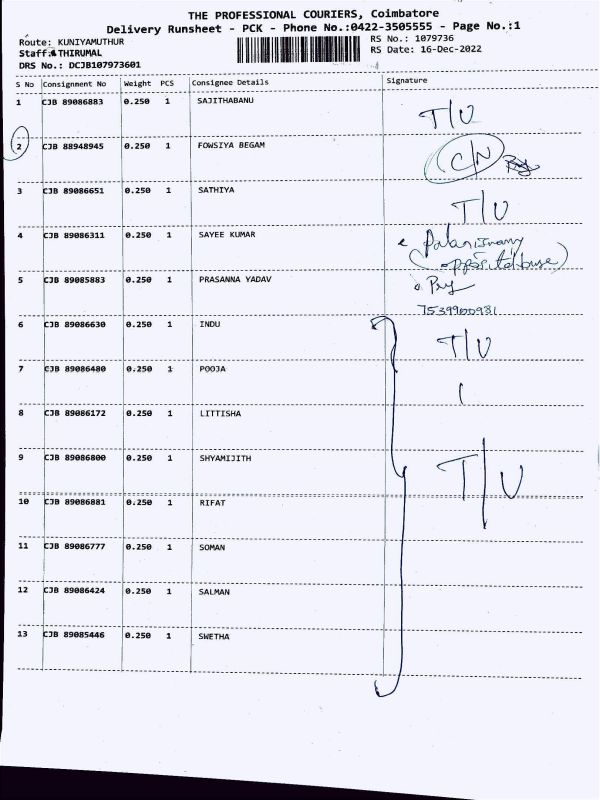 THE PROFESSIONAL COURIERS, Coimbatore
Delivery Runsheet - PCK - Phone No.:0422-3505555 - Page No.:1
Route: KUNIYAMUTHUR RS No.: 1079736
Staff: THIRUMAL RS Date: 16-Dec-2022
DRS No.: DCJB107973601
S No Consignment No Weight PCS Consignee Details Signature
1 CJB 89086883 0.250 1 SAJITHABANU T/U
2 CJB 88948945 0.250 1 FOWSIYA BEGAM C/N
3 CJB 89086651 0.250 1 SATHIYA T/U
4 CJB 89086311 0.250 1 SAYEE KUMAR
(opposite house)
5 CJB 89085883 0.250 1 PRASANNA YADAV
7539900931
6 CJB 89086630 0.250 1 INDU T/U
7 CJB 89086480 0.250 1 POOJA
8 CJB 89086172 0.250 1 LITTISHA
9 CJB 89086800 0.250 1 SHYAMIJITH T/U
10 CJB 89086881 0.250 1 RIFAT
11 CJB 89086777 0.250 1 SOMAN
12 CJB 89086424 0.250 1 SALMAN
13 CJB 89085446 0.250 1 SWETHA